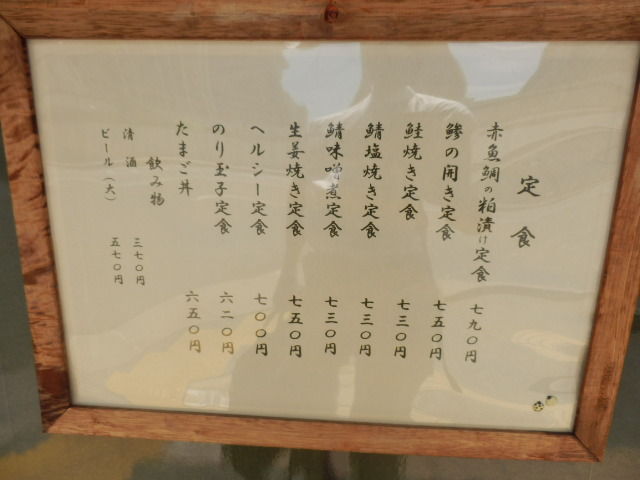 定食
赤魚鯛の粕漬け定食 七九〇円
鯵の開き定食 七五〇円
鮭焼き定食 七三〇円
鯖塩焼き定食 七三〇円
鯖味噌煮定食 七三〇円
生姜焼き定食 七五〇円
ヘルシー定食 七〇〇円
のり玉子定食 六二〇円
たまご丼 六五〇円
飲み物
清酒 三七〇円
ビール(大) 五七〇円